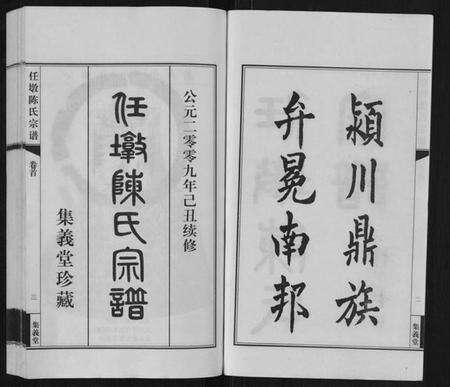 潁川鼎族
弁冕南邦
二
集義堂
公元二零零九年己丑续修
任墩陳氏宗譜
集義堂珍藏
任墩陈氏宗谱
卷首
三
集義堂